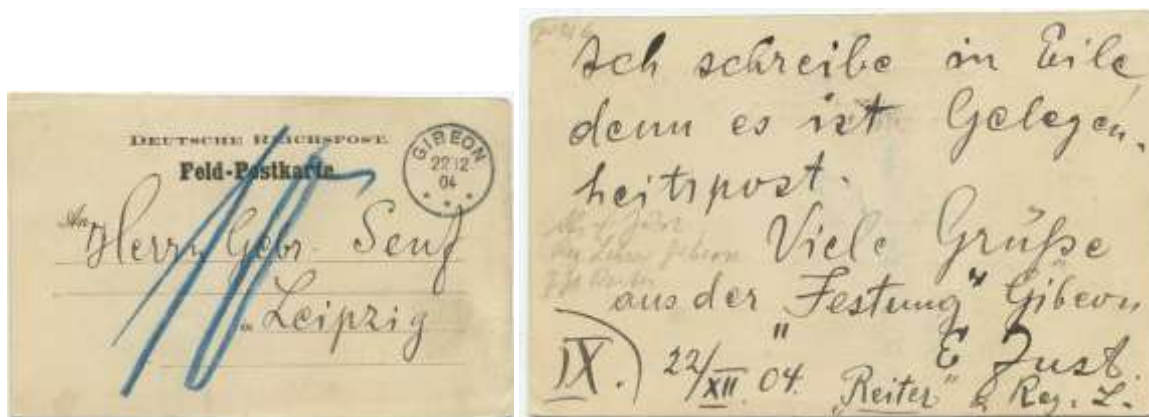 DEUTSCHE REICHSPOST.
Feld-Postkarte
GIBEON
22 12
04
An
Herrn Gebr. Senf
in Leipzig
10
Ich schreibe in Eile,
denn es ist Gelegen-
heitspost.
Viele Grüße
aus der „Festung" Gibeon
" E Just.
IX.) 22/XII 04. „Reiter" Reg. L.